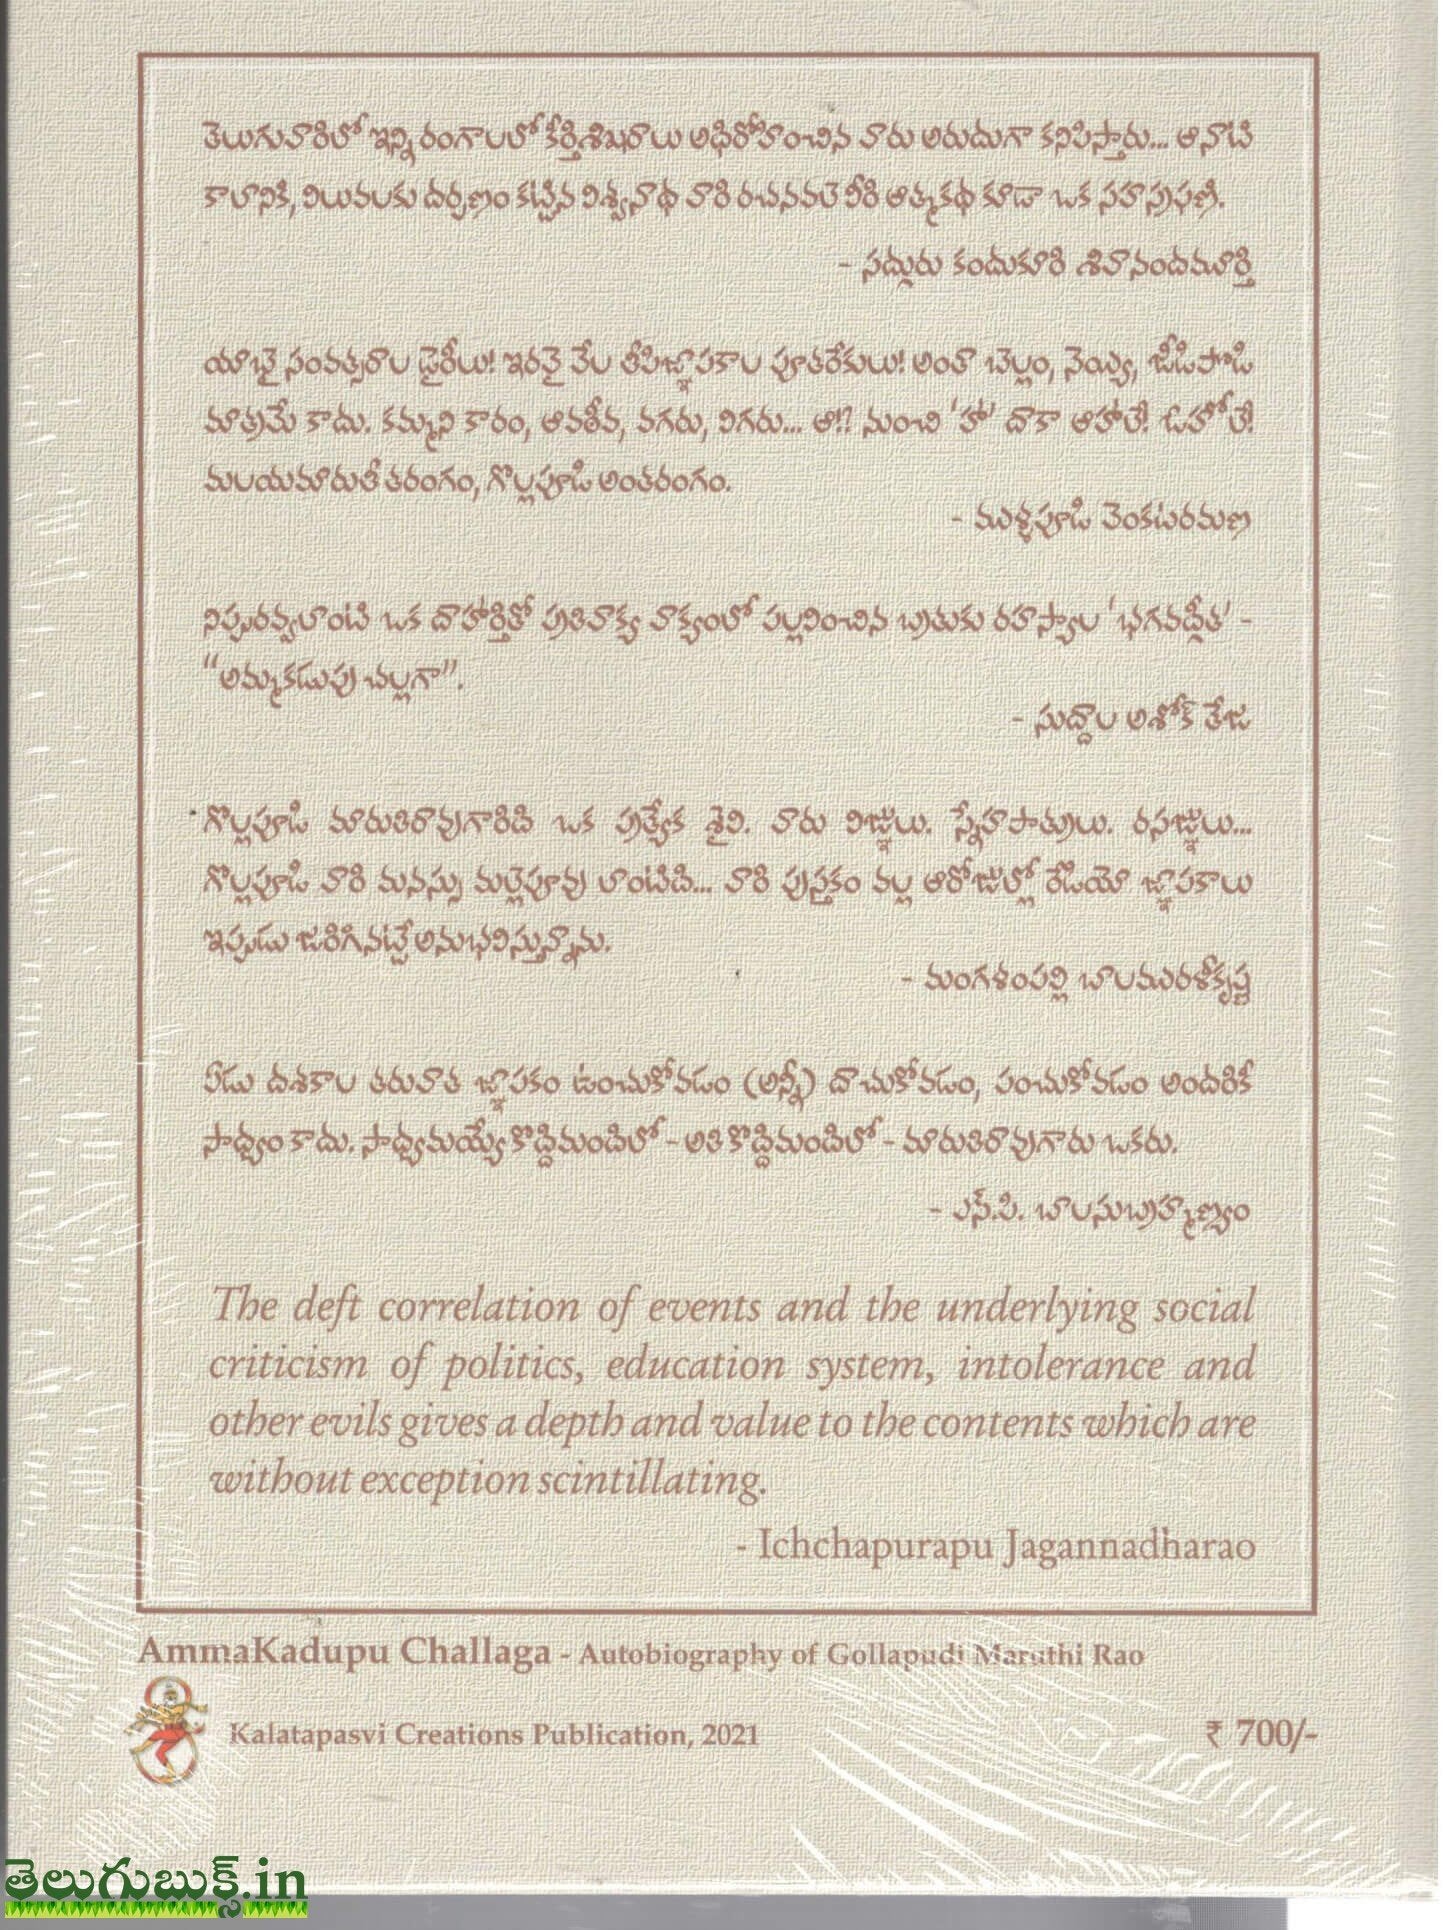 తెలుగువారిలో ఇన్ని రంగాలలో కీర్తిశిఖరాలు అధిరోహించిన వారు అరుదుగా కనిపిస్తారు... ఆనాటి
కాలానికి, విలువలకు దర్పణం కట్టిన విశ్వనాథ వారి రచనవలె వీరి ఆత్మకథ కూడా ఒక సహస్రఫణి.
- సద్గురు కందుకూరి శివానందమూర్తి
యాభై సంవత్సరాల డైరీలు! ఇరవై వేల తీపిజ్ఞాపకాల పూతరేకులు! అంతా బెల్లం, నెయ్యి, జీడిపొడి
మాత్రమే కాదు. కమ్మని కారం, ఆవఠీవ, వగరు, విగరు... ఆ!? నుంచి 'హా' దాకా ఆహాలే! ఓహోలే!
మలయమారుతీ తరంగం, గొల్లపూడి అంతరంగం.
- ముళ్ళపూడి వెంకటరమణ
నిప్పురవ్వలాంటి ఒక దాహార్తితో ప్రతివాక్య వాక్యంలో పల్లవించిన బ్రతుకు రహస్యాల 'భగవద్గీత' -
"అమ్మకడుపు చల్లగా".
- సుద్దాల అశోక్ తేజ
గొల్లపూడి మారుతిరావుగారిది ఒక ప్రత్యేక శైలి. వారు విజ్ఞులు. స్నేహపాత్రులు. రసజ్ఞులు...
గొల్లపూడి వారి మనస్సు మల్లెపూవు లాంటిది... వారి పుస్తకం వల్ల ఆరోజుల్లో రేడియో జ్ఞాపకాలు
ఇప్పుడు జరిగినట్టే అనుభవిస్తున్నాను.
- మంగళంపల్లి బాలమురళీకృష్ణ
ఏడు దశకాల తరువాత జ్ఞాపకం ఉంచుకోవడం (అన్నీ) దాచుకోవడం, పంచుకోవడం అందరికీ
సాధ్యం కాదు. సాధ్యమయ్యే కొద్దిమందిలో - అతి కొద్దిమందిలో - మారుతిరావుగారు ఒకరు.
- ఎస్.పి. బాలసుబ్రహ్మణ్యం
The deft correlation of events and the underlying social
criticism of politics, education system, intolerance and
other evils gives a depth and value to the contents which are
without exception scintillating.
- Ichchapurapu Jagannadharao
AmmaKadupu Challaga - Autobiography of Gollapudi Maruthi Rao
Kalatapasvi Creations Publication, 2021
₹ 700/-
తెలుగుబుక్స్.in